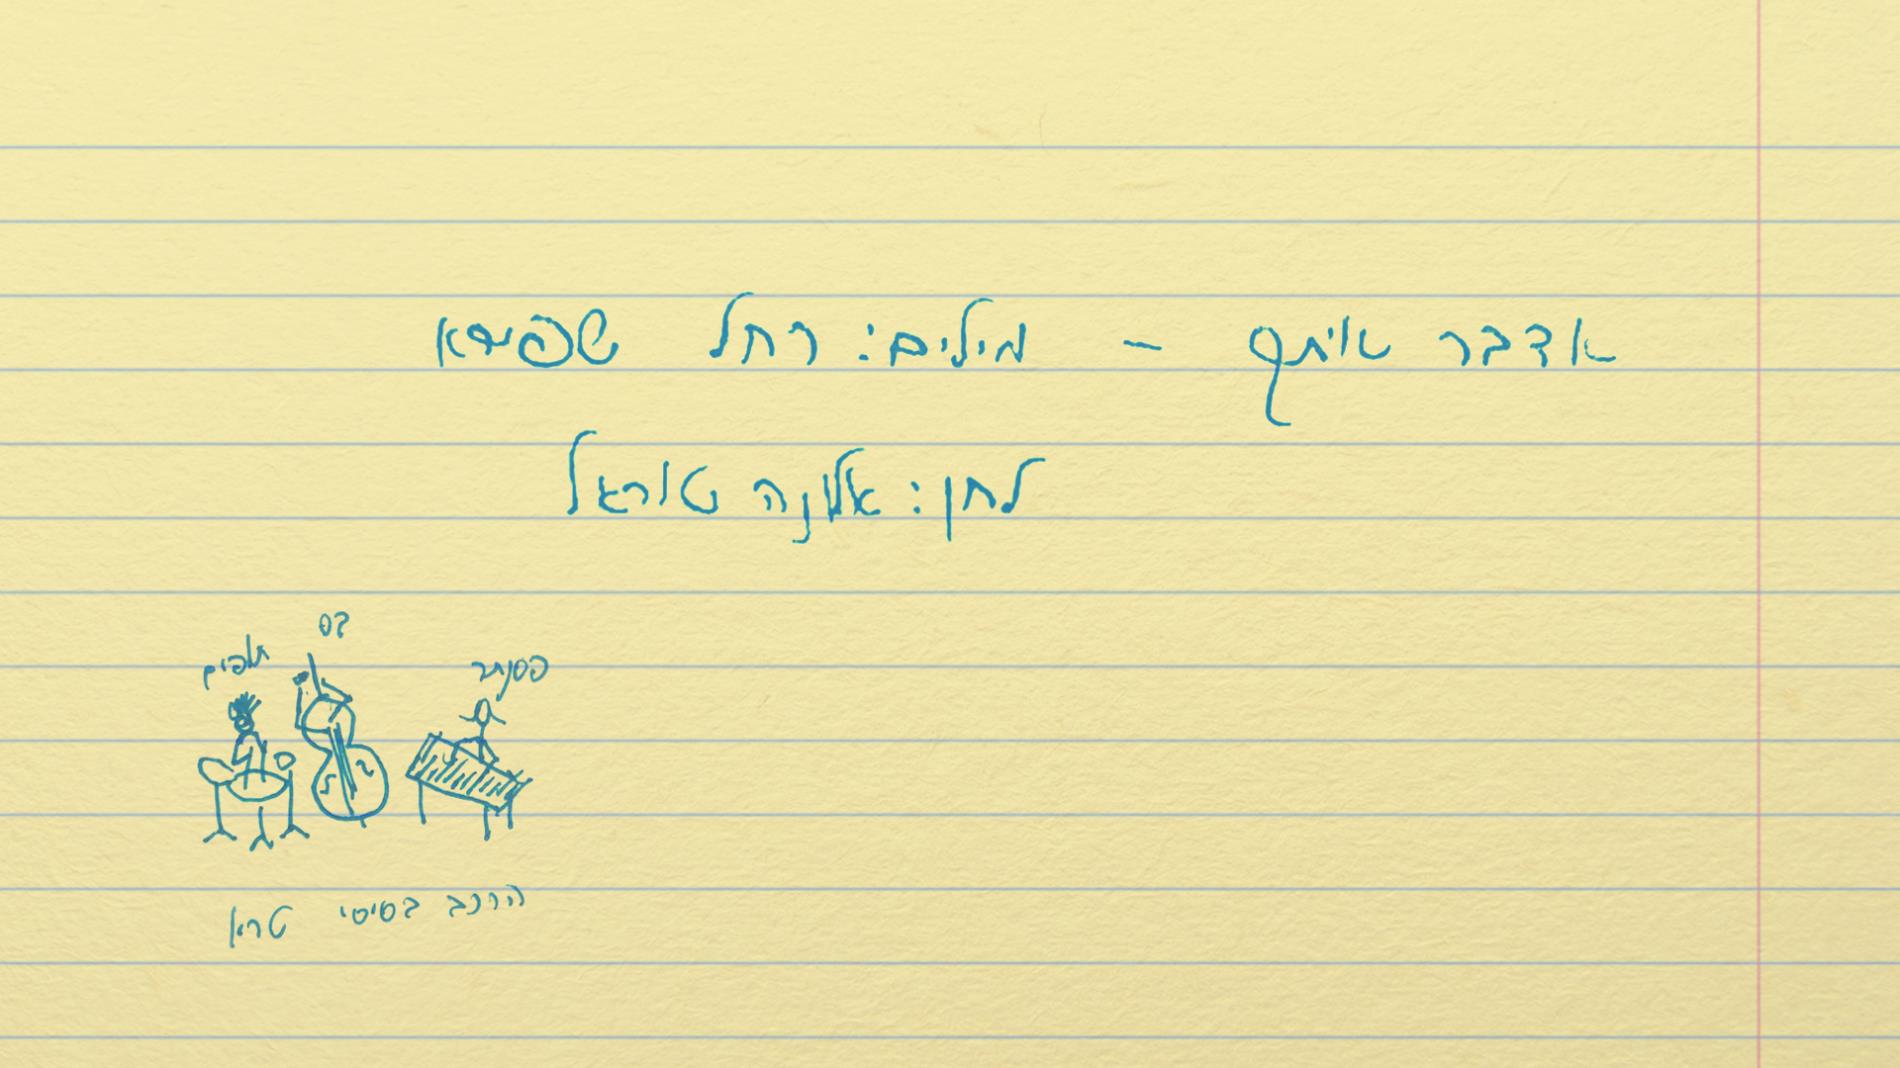 אדבר איתך – מילים: רחל שפירא
לחן: אלונה טוראל
פסנתר
בס
תופים
הרכב בסיסי